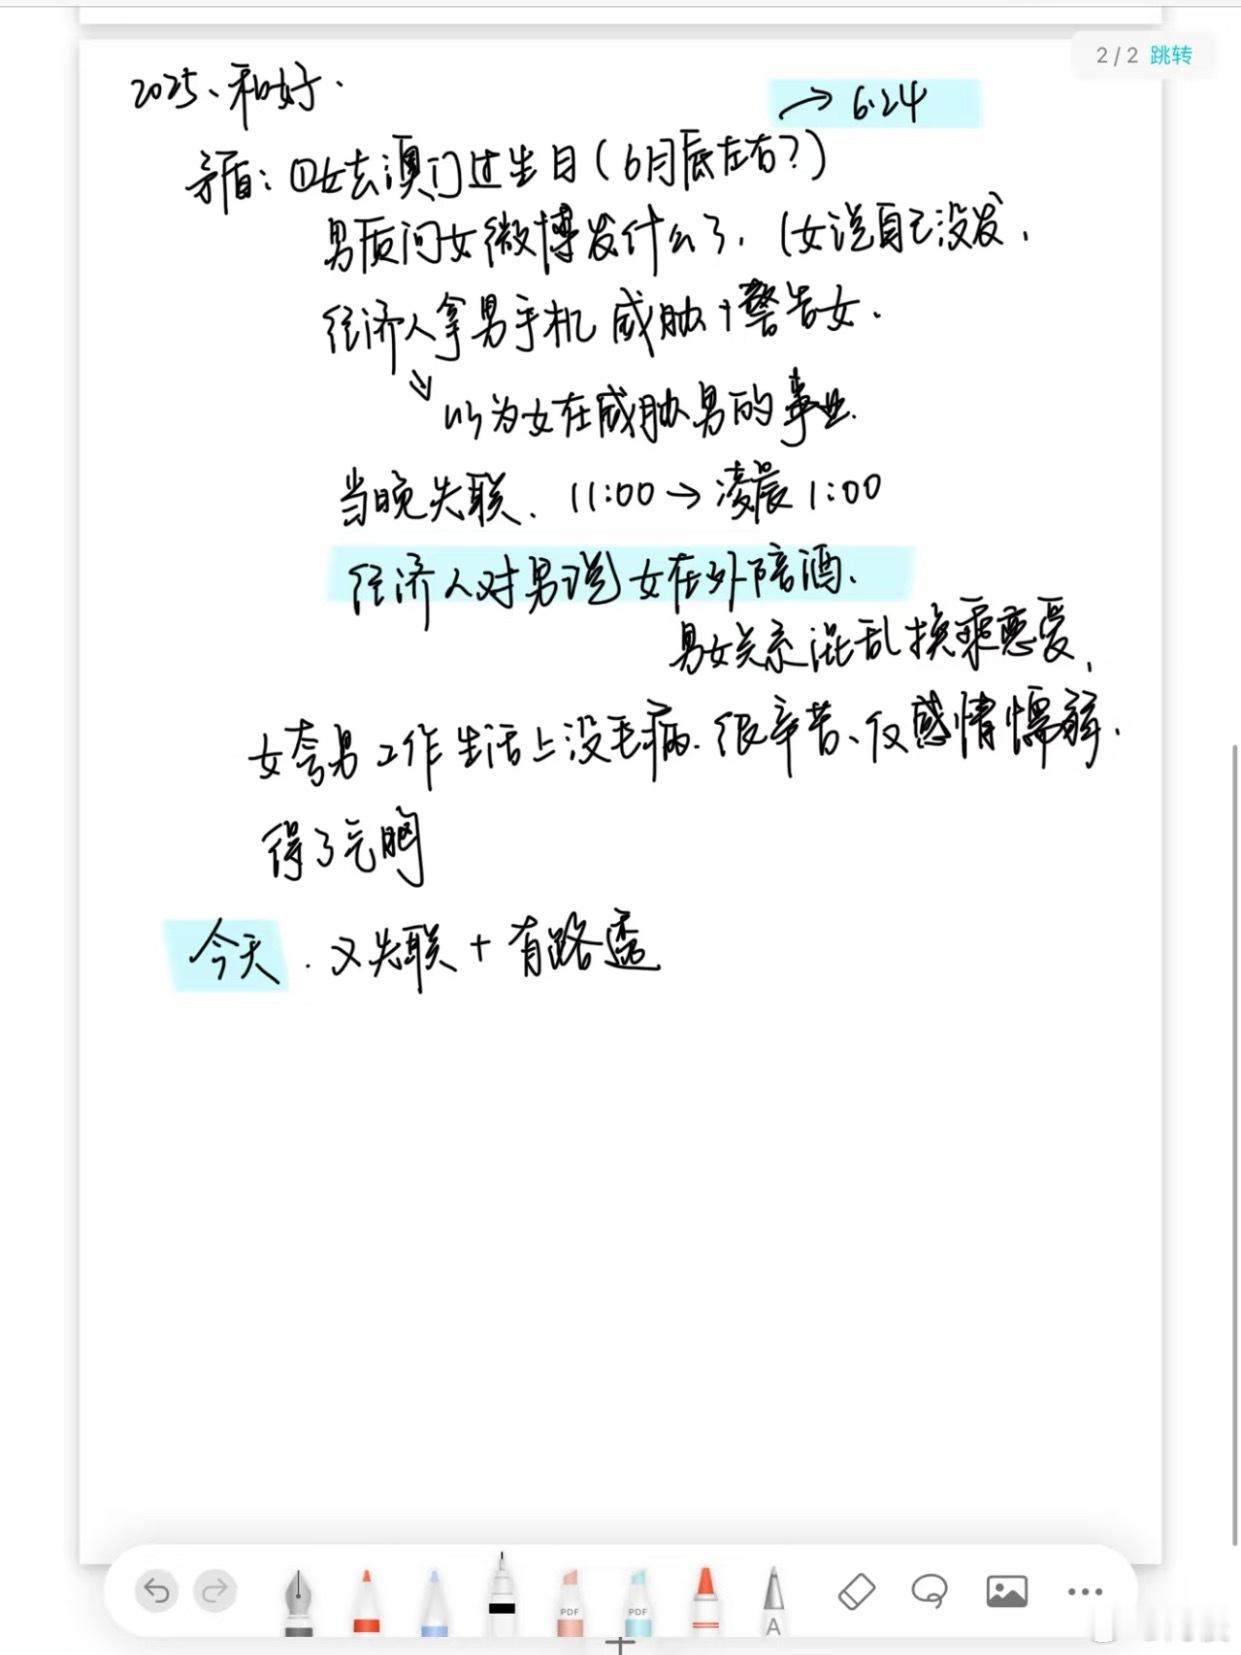 2/2 跳转
2025、和好.
→ 6.24
矛盾: ①女去澳门过生日(6月底左右?)
男质问女微博发什么了. (女说自己没发.
经济人拿男手机威胁+警告女.
以为女在威胁男的事业.
当晚失联. 11:00→凌晨1:00
经济人对男说女在外陪酒.
男女关系混乱换乘恋爱.
女夸男工作生活上没毛病.很辛苦、仅感情懦弱.
得了气胸
今天. 又失联+有路透
PDF
PDF
A